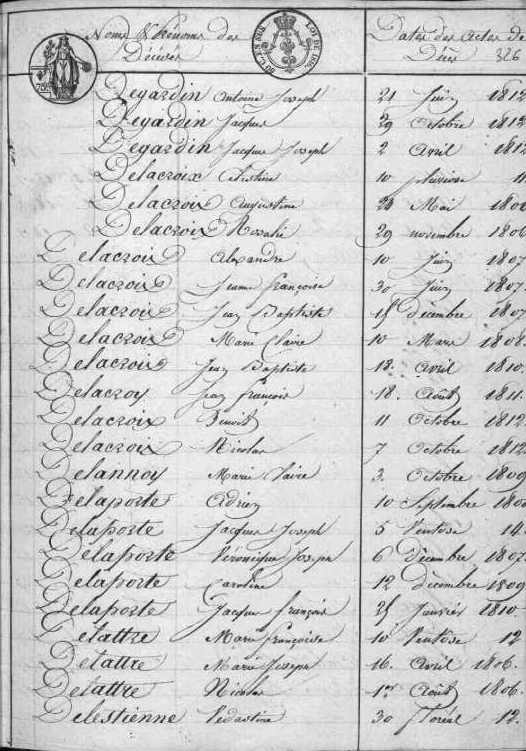 Noms & Prénoms des Dates des Actes de
Décédés Décès 326
Degardin Antoine Joseph 21 Juin 1812
Degardin Jacques 29 Octobre 1812
Degardin Jacques Joseph 2 Avril 1812
Delacroix Célestine 10 pluviose 11
Delacroix Augustine Mai
Delacroix Rosalie 29 novembre 1806
Delacroix Alexandre 10 Juin 1807
Delacroix Jeanne françoise 30 Juin 1807.
Delacroix Jean Baptiste 15 décembre 1807
Delacroix Marie Claire 10 Mars 1808.
Delacroix Jean Baptiste 18. avril 1810.
Delacroy Jean françois 18. Août 1811.
Delacroix Benoit 11 Octobre 1812.
Delacroix Nicolas 7 Octobre 1812.
Delannoy Marie Claire 3. Octobre 1809
Delaporte Adrien 10 Septembre
Delaporte Jacques Joseph 5 Ventose 14.
Delaporte Véronique Joseph 6 Décembre 1807.
Delaporte Caroline 12 décembre 1809
Delaporte Jacques françois 25 Janvier 1810.
Delattre Marie françoise 10 Ventôse 12
Delattre Marie Joseph 16. avril 1806.
Delattre Nicolas Août 1806.
Delestienne Védastine 30 floréal 12.